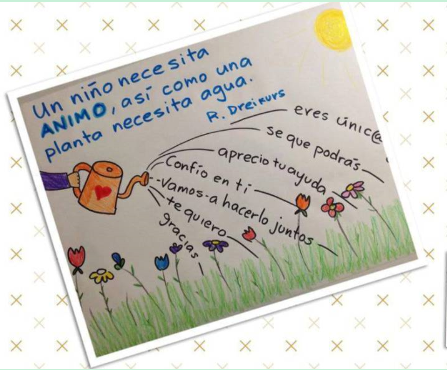 Un niño necesita
ANIMO, así como una
planta necesita agua.
R. Dreikurs
eres únic@
se que podrás
aprecio tu ayuda
Confío en ti
Vamos a hacerlo juntos
te quiero
gracias